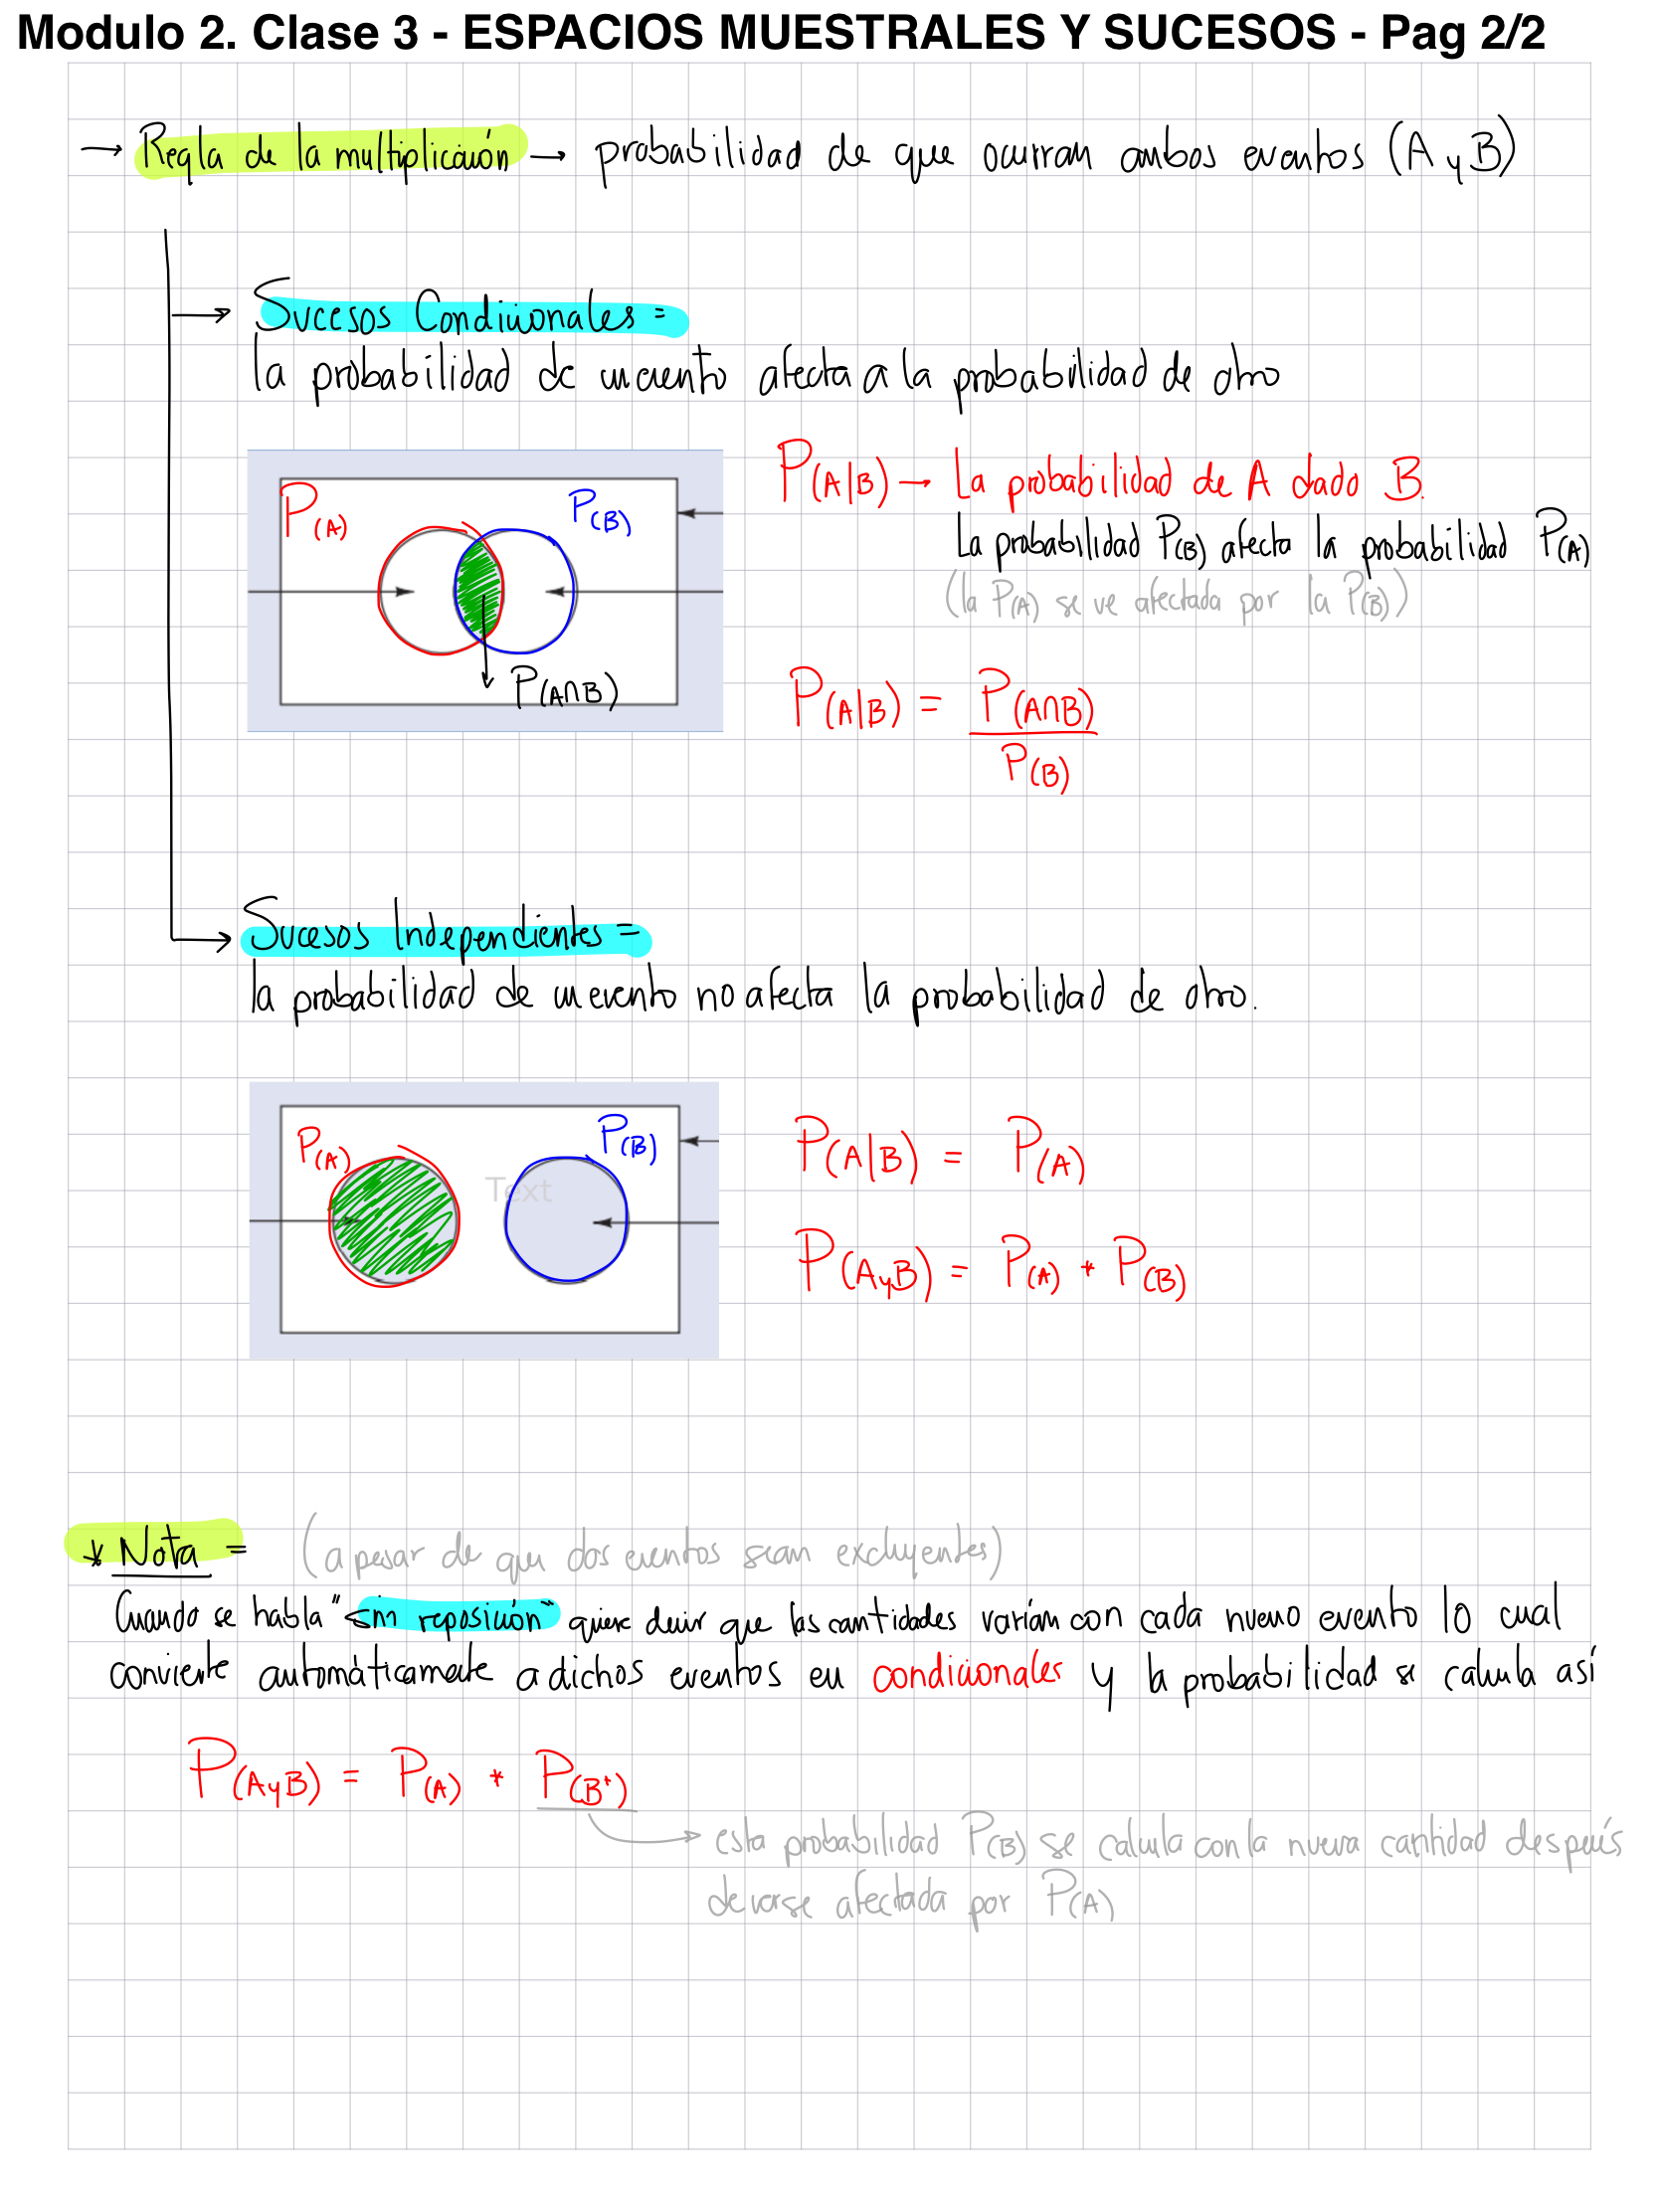 Modulo 2. Clase 3 - ESPACIOS MUESTRALES Y SUCESOS - Pag 2/2
→ Regla de la multiplicación → probabilidad de que ocurran ambos eventos (A y B)
→ Sucesos Condicionales =
la probabilidad de un evento afecta a la probabilidad de otro
P(A) P(B)
P(A∩B)
P(A|B) → La probabilidad de A dado B.
La probabilidad P(B) afecta la probabilidad P(A)
(la P(A) se ve afectada por la P(B))
P(A|B) = P(A∩B)
P(B)
→ Sucesos Independientes =
la probabilidad de un evento no afecta la probabilidad de otro.
P(A) P(B)
Text
P(A|B) = P(A)
P(AyB) = P(A) * P(B)
* Nota = (a pesar de que dos eventos sean excluyentes)
Cuando se habla "sin reposición" quiere decir que las cantidades varían con cada nuevo evento lo cual
convierte automáticamente a dichos eventos en condicionales y la probabilidad se calcula así
P(AyB) = P(A) * P(B*)
→ esta probabilidad P(B) se calcula con la nueva cantidad después
de verse afectada por P(A)